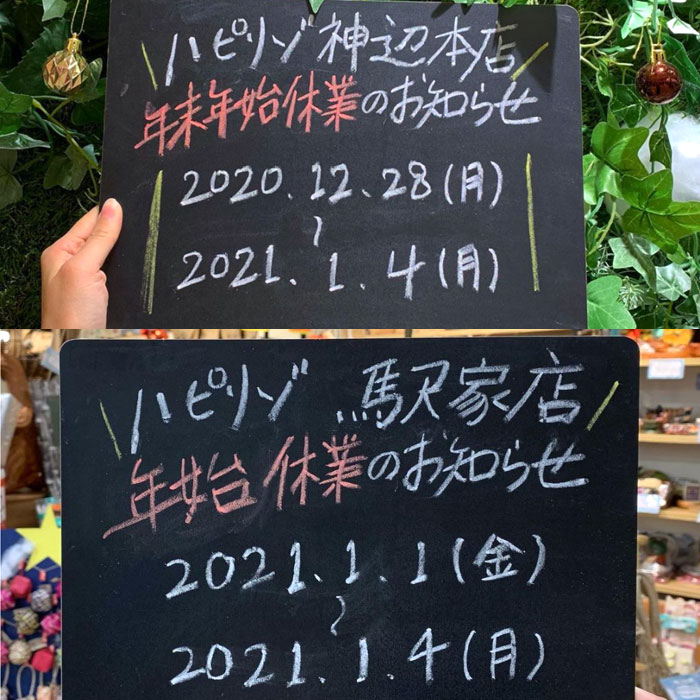 ハピリゾ神辺本店
年末年始休業のお知らせ
2020.12.28(月)
~
2021.1.4(月)
ハピリゾ 駅家店
年始休業のお知らせ
2021.1.1(金)
~
2021.1.4(月)